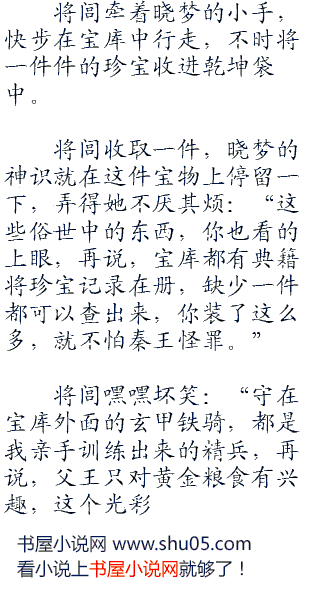 将闾牵着晓梦的小手，
快步在宝库中行走，不时将
一件件的珍宝收进乾坤袋
中。
将闾收取一件，晓梦的
神识就在这件宝物上停留一
下，弄得她不厌其烦：“这
些俗世中的东西，你也看的
上眼，再说，宝库都有典籍
将珍宝记录在册，缺少一件
都可以查出来，你装了这么
多，就不怕秦王怪罪。”
将闾嘿嘿坏笑：“守在
宝库外面的玄甲铁骑，都是
我亲手训练出来的精兵，再
说，父王只对黄金粮食有兴
趣，这个光彩
书屋小说网 www.shu05.com
看小说上书屋小说网就够了！